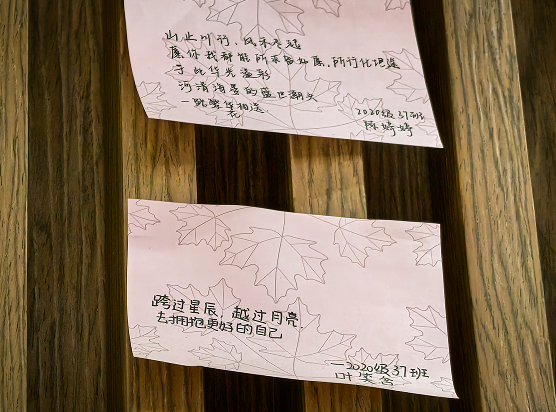 山止川行，风禾尽起
愿你我都能所求皆如愿，所行化坦途
于此华光溢彩
河清海晏的盛世潮头
一路繁华相送
2020级37班
陈婷婷
跨过星辰，越过月亮
去拥抱更好的自己
—2020级37班
叶实含